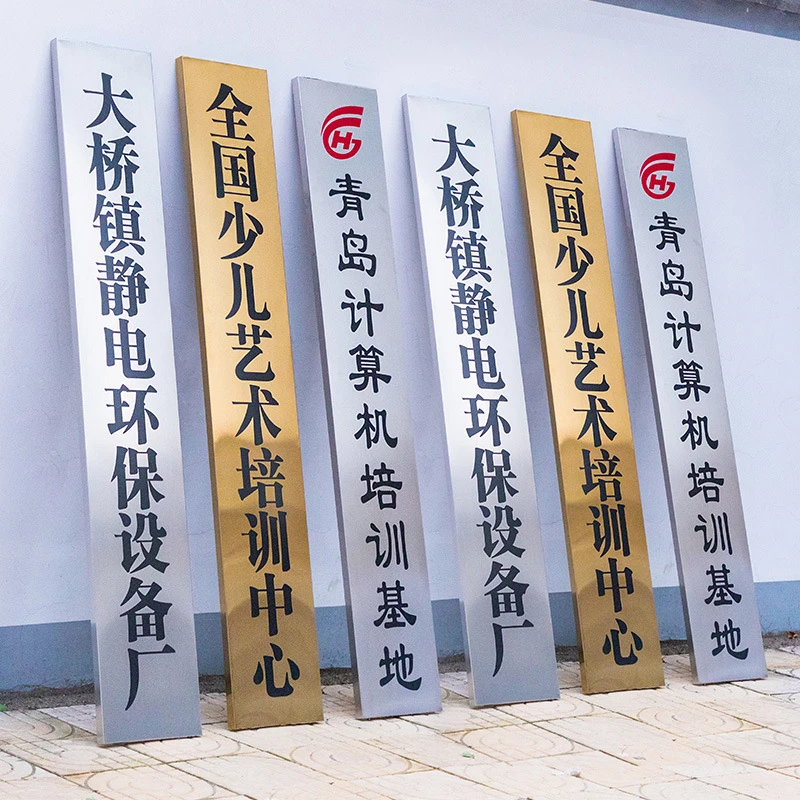 大桥镇静电环保设备厂
全国少儿艺术培训中心
H
青岛计算机培训基地
大桥镇静电环保设备厂
全国少儿艺术培训中心
H
青岛计算机培训基地